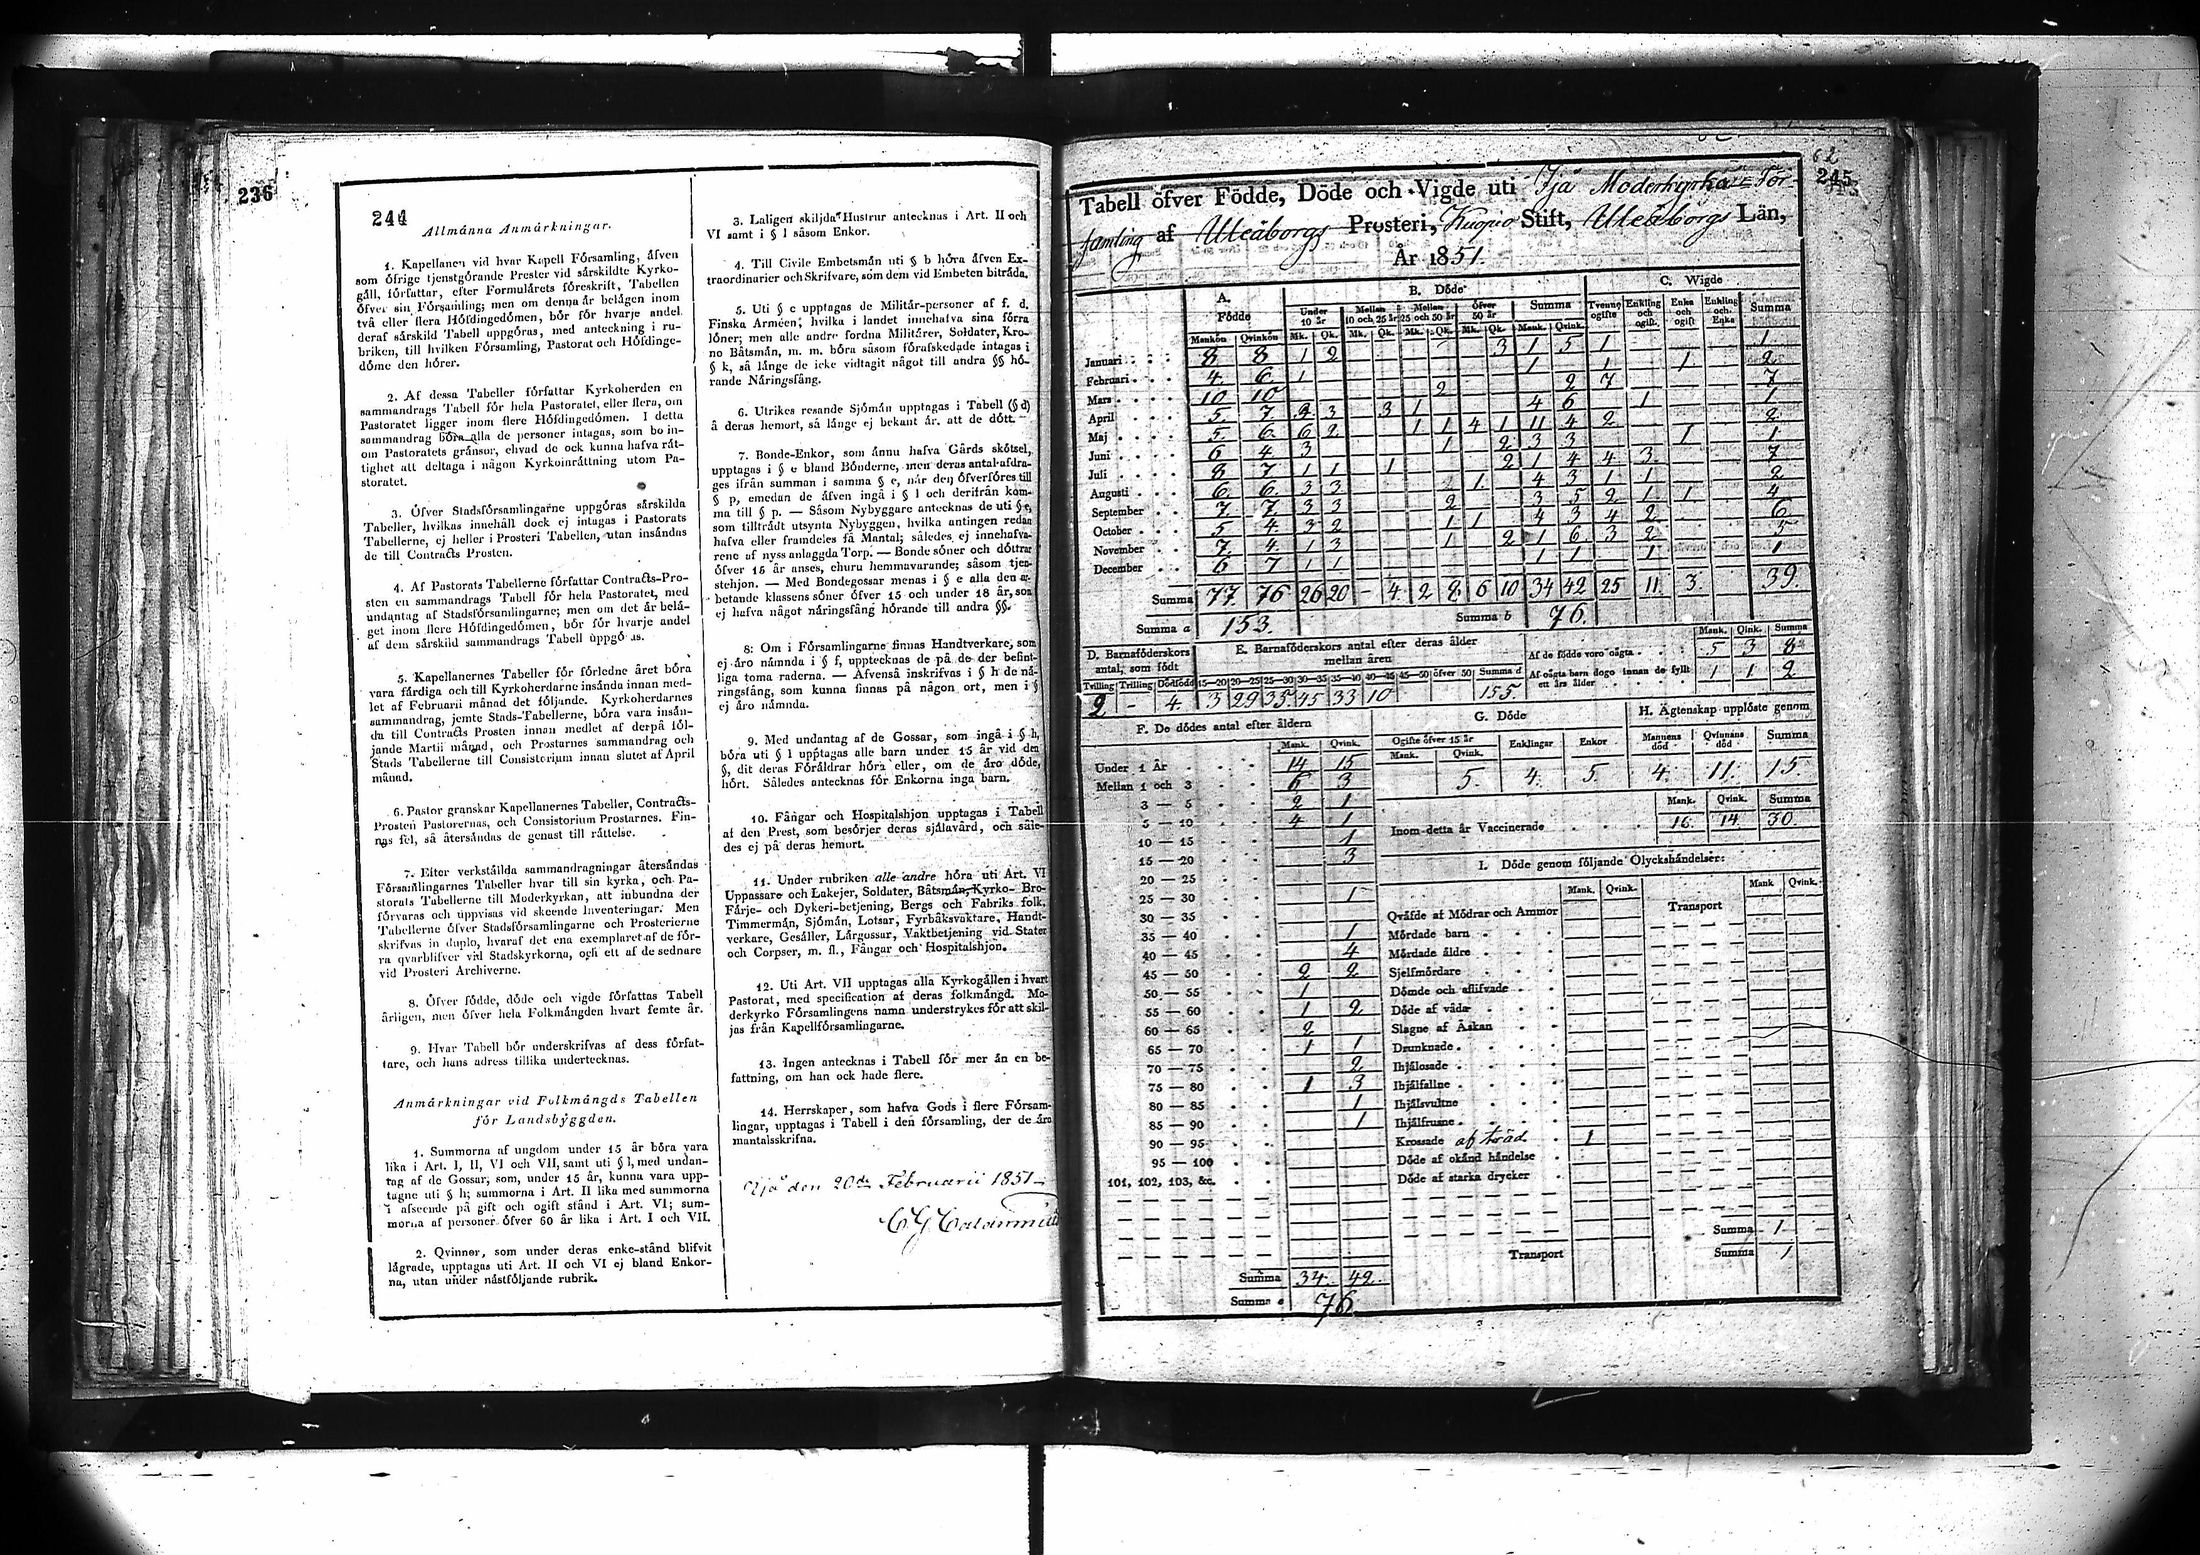 236
244
Allmänna Anmärkningar.
1. Kapellanen vid hvar Kapell Församling, äfven
som öfrige tjenstgörande Prester vid särskildte Kyrko-
gäll, författar, efter Formulärets föreskrift, Tabellen
öfver sin Församling; men om denna är belägen inom
två eller flera Höfdingedömen, bör för hvarje andel
deraf särskild Tabell uppgöras, med anteckning i ru-
briken, till hvilken Församling, Pastorat och Höfdinge-
döme den hörer.
2. Af dessa Tabeller författar Kyrkoherden en
sammandrags Tabell för hela Pastoratet, eller flera, om
Pastoratet ligger inom flere Höfdingedömen. I detta
sammandrag böra alla de personer intagas, som bo in-
om Pastoratets gränsor, ehvad de ock kunna hafva rät-
tighet att deltaga i någon Kyrkoinrättning utom Pa-
storatet.
3. Öfver Stadsförsamlingarne uppgöras särskilda
Tabeller, hvilkas innehåll dock ej intagas i Pastorats
Tabellerne, ej heller i Prosteri Tabellen, utan insändas
de till Contracts Prosten.
4. Af Pastorats Tabellerne författar Contracts-Pro-
sten en sammandrags Tabell för hela Pastoratet, med
undantag af Stadsförsamlingarne; men om det är belä-
get inom flere Höfdingedömen, bör för hvarje andel
af dem särskild sammandrags Tabell uppgöras.
5. Kapellanernes Tabeller för förledne året böra
vara färdiga och till Kyrkoherdarne insända innan med-
let af Februarii månad det följande. Kyrkoherdarnes
sammandrag, jemte Stads-Tabellerne, böra vara insän-
da till Contracts Prosten innan medlet af derpå föl-
jande Martii månad, och Prostarnes sammandrag och
Stads Tabellerne till Consistorium innan slutet af April
månad.
6. Pastor granskar Kapellanernes Tabeller, Contracts-
Prosten Pastorernas, och Consistorium Prostarnes. Fin-
nas fel, så återsändas de genast till rättelse.
7. Efter verkställda sammandragningar återsändas
Församlingarnes Tabeller hvar till sin kyrka, och Pa-
storats Tabellerne till Moderkyrkan, att inbundna der
förvaras och uppvisas vid skeende Inventeringar. Men
Tabellerne öfver Stadsförsamlingarne och Prosterierne
skrifvas in duplo, hvaraf det ena exemplaret af de för-
ra qvarblifver vid Stadskyrkorna, och ett af de sednare
vid Prosteri Archiverne.
8. Öfver födde, döde och vigde författas Tabell
årligen, men öfver hela Folkmängden hvart femte år.
9. Hvar Tabell bör underskrifvas af dess förfat-
tare, och hans adress tillika undertecknas.
Anmärkningar vid Folkmängds Tabellen
för Landsbyggden.
1. Summorna af ungdom under 15 år böra vara
lika i Art. I, II, VI och VII, samt uti § l, med undan-
tag af de Gossar, som, under 15 år, kunna vara upp-
tagne uti § h; summorna i Art. II lika med summorna
i afseende på gift och ogift stånd i Art. VI; sum-
morna af personer öfver 60 år lika i Art. I och VII.
2. Qvinnor, som under deras enke-stånd blifvit
lägrade, upptagas uti Art. II och VI ej bland Enkor-
na, utan under nästföljande rubrik.
3. Laligen skiljda Hustrur antecknas i Art. II och
VI samt i § l såsom Enkor.
4. Till Civile Embetsmän uti § b höra äfven Ex-
traordinarier och Skrifvare, som dem vid Embeten biträda.
5. Uti § c upptagas de Militär-personer af f. d.
Finska Armeen, hvilka i landet innehafva sina förra
löner; men alle andre fordna Militärer, Soldater, Kro-
no Båtsmän, m. m. böra såsom förafskedade intagas i
§ k, så länge de icke vidtagit något till andra §§ hö-
rande Näringsfång.
6. Utrikes resande Sjömän upptagas i Tabell (§ d)
å deras hemort, så länge ej bekant är, att de dött.
7. Bonde-Enkor, som ännu hafva Gårds skötsel,
upptagas i § e bland Bönderne, men deras antal afdra-
ges ifrån summan i samma § e, när den öfverföres till
§ p, emedan de äfven ingå i § l och derifrån kom-
ma till § p. — Såsom Nybyggare antecknas de uti § e,
som tillträdt utsynta Nybyggen, hvilka antingen redan
hafva eller framdeles få Mantal; således ej innehafva-
rene af nyss anlaggda Torp. — Bonde söner och döttrar
öfver 15 år anses, ehuru hemmavarande, såsom tjen-
stehjon. — Med Bondegossar menas i § e alla den ar-
betande klassens söner öfver 15 och under 18 år, som
ej hafva något näringsfång hörande till andra §§.
8. Om i Församlingarne finnas Handtverkare, som
ej äro nämnda i § f, upptecknas de på de der befint-
liga toma raderna. — Äfvenså inskrifvas i § h de nä-
ringsfång, som kunna finnas på någon ort, men i §
ej äro nämnda.
9. Med undantag af de Gossar, som ingå i § h,
böra uti § l upptagas alle barn under 15 år vid den
§, dit deras Föräldrar höra eller, om de äro döde,
hört. Således antecknas för Enkorna inga barn.
10. Fångar och Hospitalshjon upptagas i Tabell
af den Prest, som besörjer deras själavård, och såle-
des ej på deras hemort.
11. Under rubriken alle andre höra uti Art. VI
Uppassare och Lakejer, Soldater, Båtsmän, Kyrko- Bro-
Färje- och Dykeri-betjening, Bergs och Fabriks folk,
Timmermän, Sjömän, Lotsar, Fyrbåksvaktare, Handt-
verkare, Gesäller, Lärgossar, Vaktbetjening vid Stater
och Corpser, m. fl., Fångar och Hospitalshjon.
12. Uti Art. VII upptagas alla Kyrkogällen i hvart
Pastorat, med specification af deras folkmängd. Mo-
derkyrko Församlingens namn understrykes för att skil-
jas från Kapellförsamlingarne.
13. Ingen antecknas i Tabell för mer än en be-
fattning, om han ock hade flere.
14. Herrskaper, som hafva Gods i flere Försam-
lingar, upptagas i Tabell i den församling, der de äro
mantalsskrifna.
Ijå den 20de Februarii 1851
62
245
Tabell öfver Födde, Döde och Vigde uti Ijå Moderkyrko För-
samling af Uleåborgs Prosteri, Kuopio Stift, Uleåborgs Län,
År 1851.
A. Födde B. Döde C. Wigde
Under 10 år Mellan 10 och 25 år Mellan 25 och 50 år öfver 50 år Summa Tvenne ogifte Enkling och ogift. Enka och ogift Enkling och Enka Summa
Mankön Qvinkön Mk. Qk. Mk. Qk. Mk. Qk. Mk. Qk. Mank. Qvink.
Januari 8 8 1 2 3 1 5 1 1
Februari 4 6 1 1 1 1 2
Mars 10 10 2 2 7 7
April 5 7 3 3 1 4 6 1 1
Maj 5 6 6 2 1 1 4 1 11 4 2 2
Juni 6 4 3 1 2 3 3 1 1
Juli 8 7 1 1 1 2 1 4 4 3 7
Augusti 6 6 3 3 1 4 3 1 1 2
September 7 7 3 3 2 3 5 2 1 1 4
October 5 4 3 2 1 1 4 3 4 2 6
November 7 4 1 3 1 2 1 6 3 2 5
December 6 7 1 1 1 1 1 1
Summa 77. 76 26 20 - 4 2 8 6 10 34 42 25 11 3 39.
Summa a 153. Summa b 76.
D. Barnaföderskors antal, som födt
E. Barnaföderskors antal efter deras ålder mellan åren
Mank. Qink. Summa
Af de födde voro oägta 5 3 8
Af oägta barn dogo innan de fyllt ett års ålder 1 1 2
Tvilling Trilling Dödfödd 15—20 20—25 25—30 30—35 35—40 40—45 45—50 öfver 50 Summa d
2 - 4. 3 29 35 45 33 10 155
F. De dödes antal efter åldern
Mank. Qvink.
Under 1 År 14 15
Mellan 1 och 3 6 3
3 — 5 2 1
5 — 10 4 1
10 — 15 1
15 — 20 3
20 — 25
25 — 30 1
30 — 35
35 — 40 1
40 — 45 4
45 — 50 2 2
50 — 55 1
55 — 60 1 2
60 — 65 2
65 — 70 1 1
70 — 75 2
75 — 80 1 3
80 — 85 1
85 — 90 1
90 — 95
95 — 100
101, 102, 103, &c.
Summa 34. 42.
Summa e 76.
G. Döde
Ogifte öfver 15 år Enklingar Enkor
Mank. Qvink.
5. 4. 5.
H. Ägtenskap upplöste genom
Mannens död Qvinnans död Summa
4. 11. 15.
Mank. Qvink. Summa
Inom detta år Vaccinerade 16. 14 30.
I. Döde genom följande Olyckshändelser:
Mank. Qvink. Transport Mank Qvink.
Qväfde af Mödrar och Ammor
Mördade barn
Mördade äldre
Sjelfmördare
Dömde och aflifvade
Döde af våda
Slagne af Åskan
Drunknade
Ihjälosade
Ihjälfallne
Ihjälsvultne
Ihjälfrusne
Krossade af träd 1
Döde af okänd händelse
Döde af starka drycker
Summa 1
Transport Summa 1